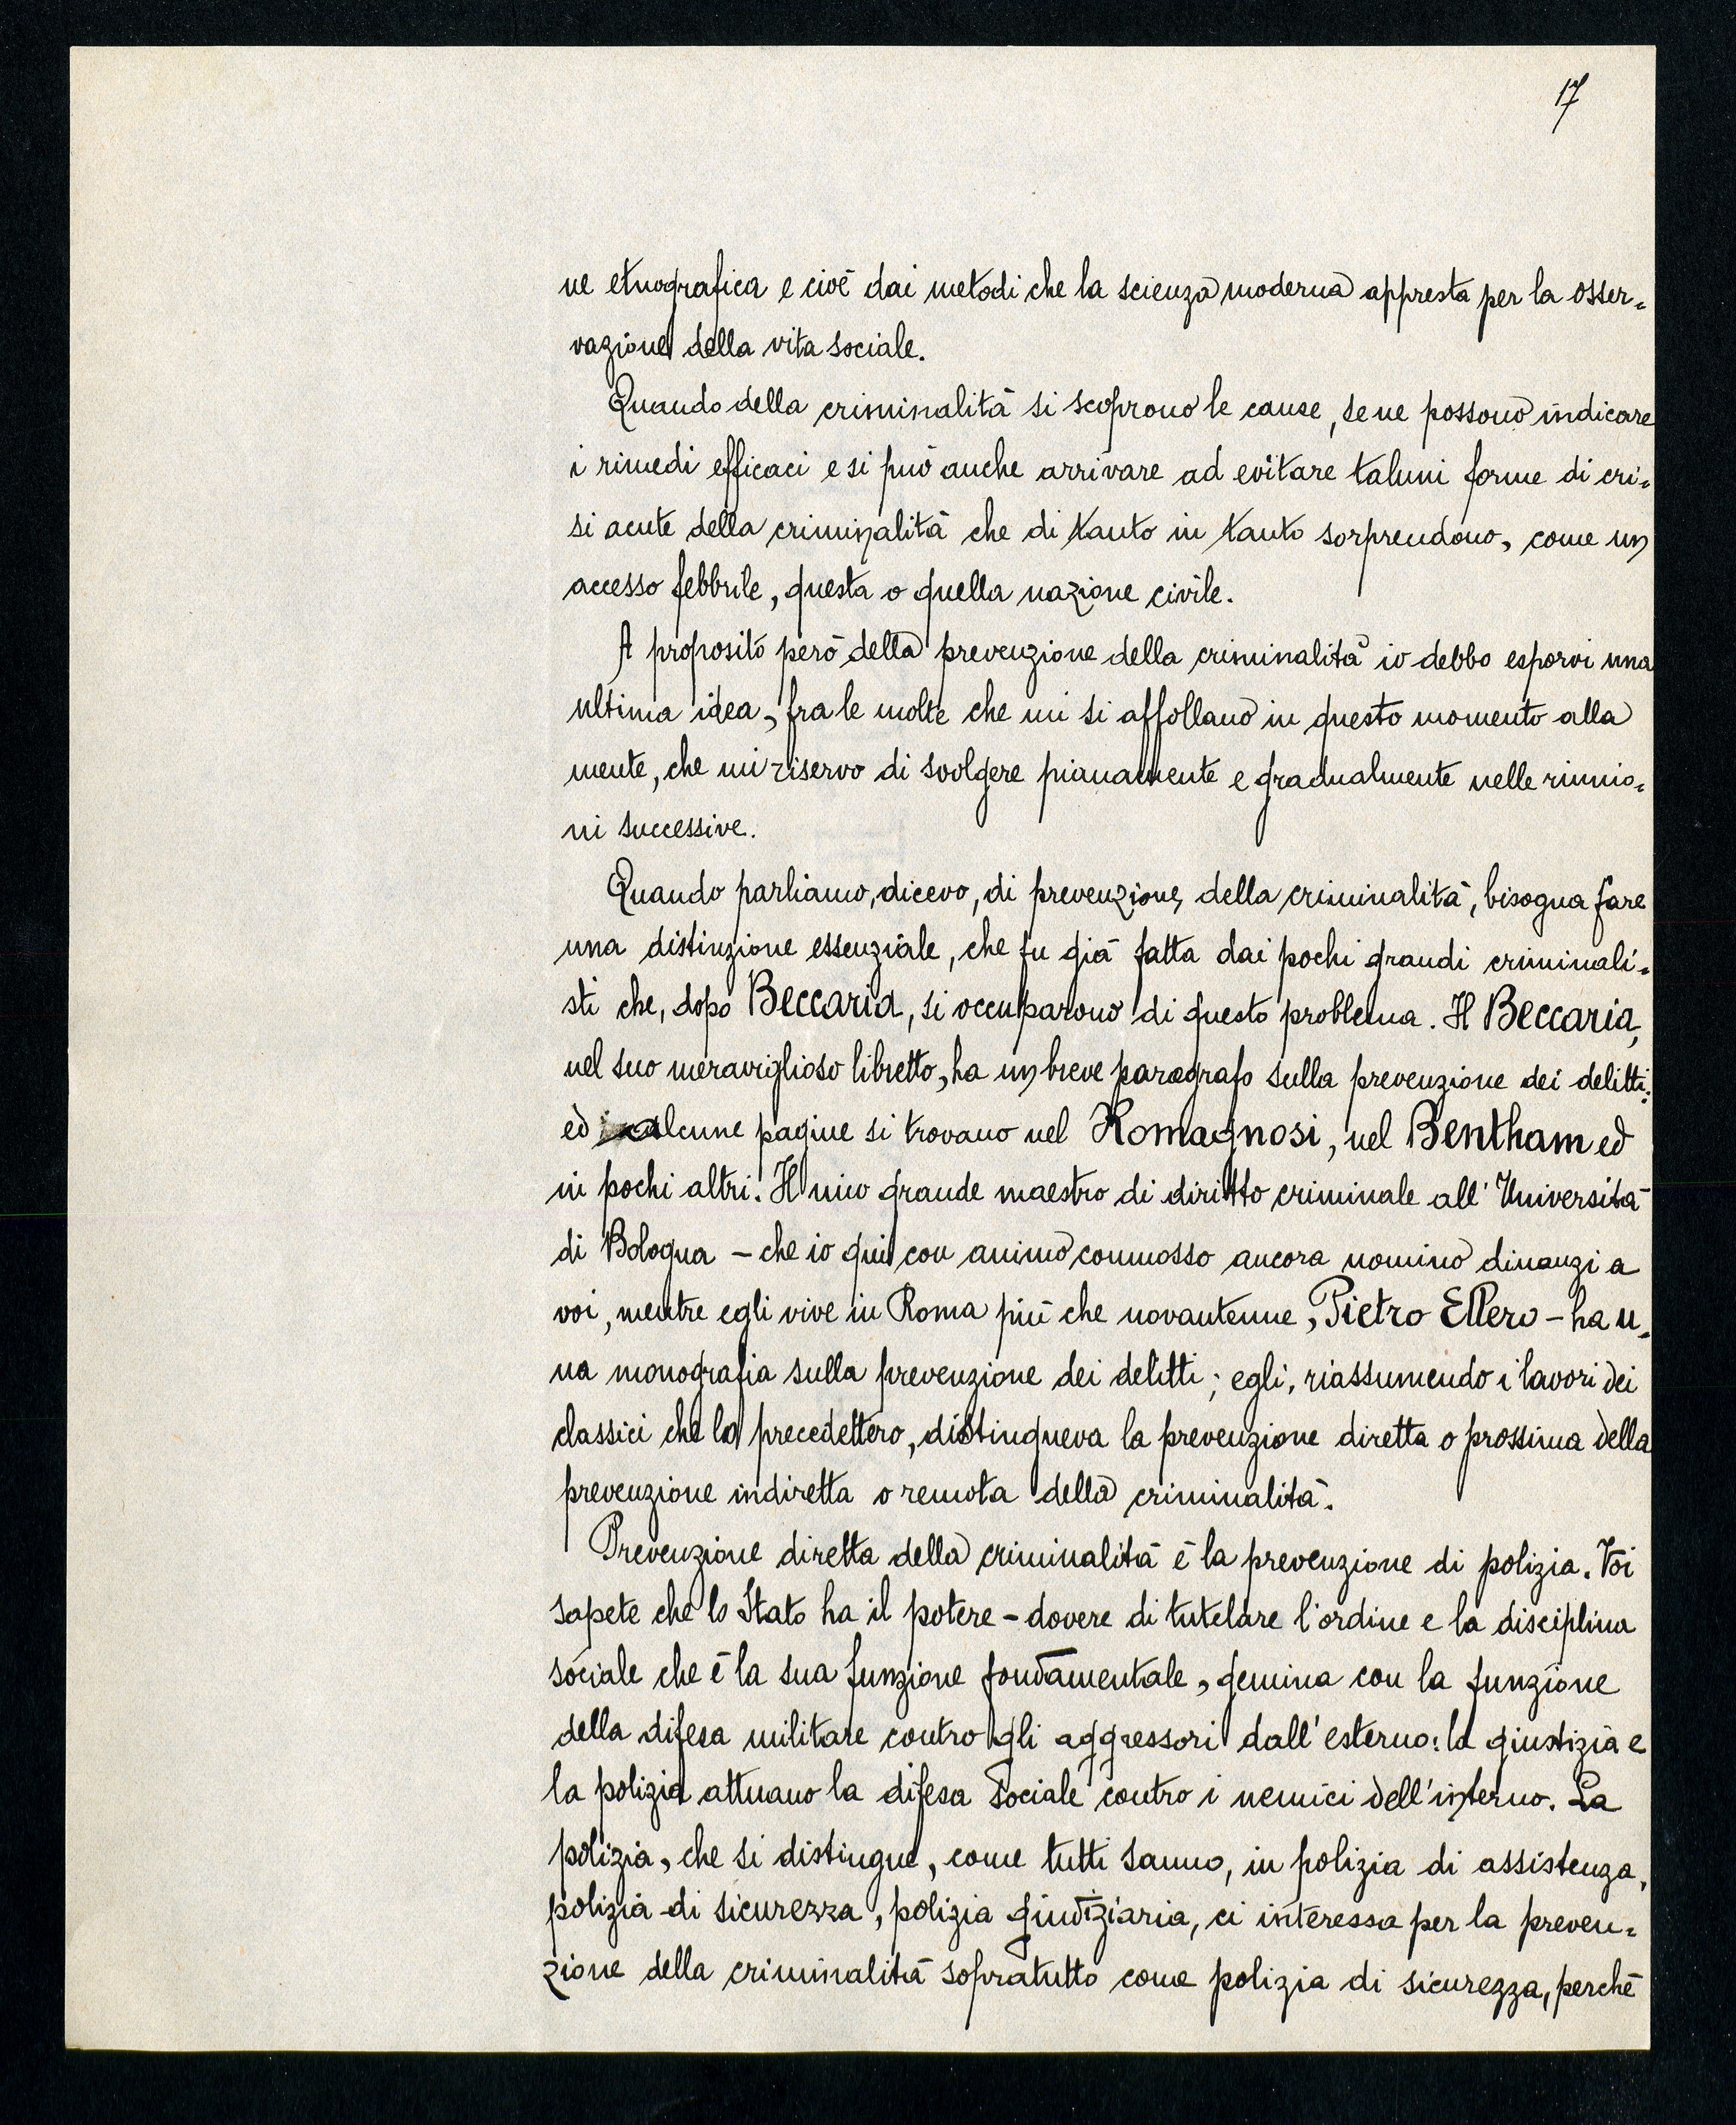 17
ne etnografica e cioè dai metodi che la scienza moderna appresta per la osser=
vazione della vita sociale.
Quando della criminalità si scoprono le cause, se ne possono indicare
i rimedi efficaci e si può anche arrivare ad evitare taluni forme di cri=
si acute della criminalità che di tanto in tanto sorprendono, come un
accesso febbrile, questa o quella nazione civile.
A proposito però della prevenzione della criminalità io debbo esporvi una
ultima idea, fra le molte che mi si affollano in questo momento alla
mente, che mi riservo di svolgere pianamente e gradualmente nelle riunio=
ni successive.
Quando parliamo, dicevo, di prevenzione della criminalità, bisogna fare
una distinzione essenziale, che fu già fatta dai pochi grandi criminali=
sti che, dopo Beccaria, si occuparono di questo problema. Il Beccaria,
nel suo meraviglioso libretto, ha un breve paragrafo sulla prevenzione dei delitti;
ed alcune pagine si trovano nel Romagnosi, nel Bentham ed
in pochi altri. Il mio grande maestro di diritto criminale all'Università
di Bologna - che io qui con animo commosso ancora nomino dinanzi a
voi, mentre egli vive in Roma più che novantenne, Pietro Ellero - ha u=
na monografia sulla prevenzione dei delitti; egli, riassumendo i lavori dei
classici che lo precedettero, distingueva la prevenzione diretta o prossima della
prevenzione indiretta o remota della criminalità.
Prevenzione diretta della criminalità è la prevenzione di polizia. Voi
sapete che lo Stato ha il potere - dovere di tutelare l'ordine e la disciplina
sociale che è la sua funzione fondamentale, gemina con la funzione
della difesa militare contro gli aggressori dall'esterno: la giustizia e
la polizia attuano la difesa sociale contro i nemici dell'interno. La
polizia, che si distingue, come tutti sanno, in polizia di assistenza,
polizia di sicurezza, polizia giudiziaria, ci interessa per la preven=
zione della criminalità sopratutto come polizia di sicurezza, perchè